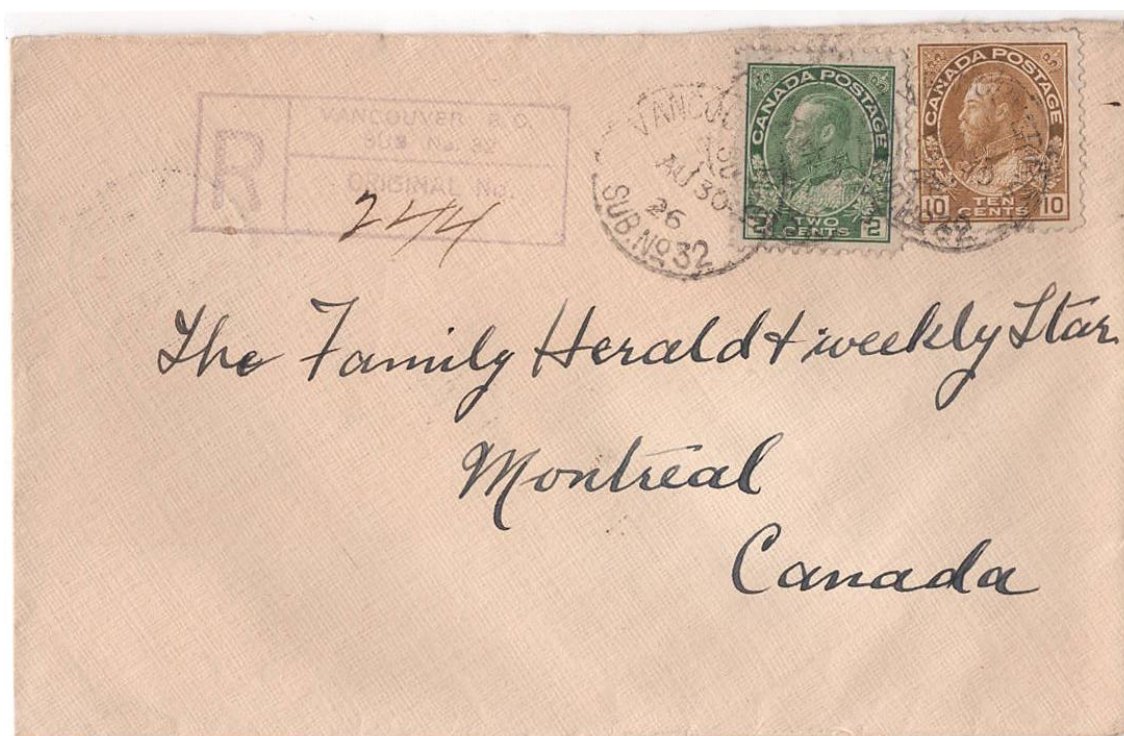 R
VANCOUVER B.C.
SUB No. 32
ORIGINAL No.
244
VANCOUVER
AU 30
26
SUB. No 32
CANADA POSTAGE
2 TWO CENTS 2
CANADA POSTAGE
10 TEN CENTS 10
The Family Herald & weekly Star
Montreal
Canada